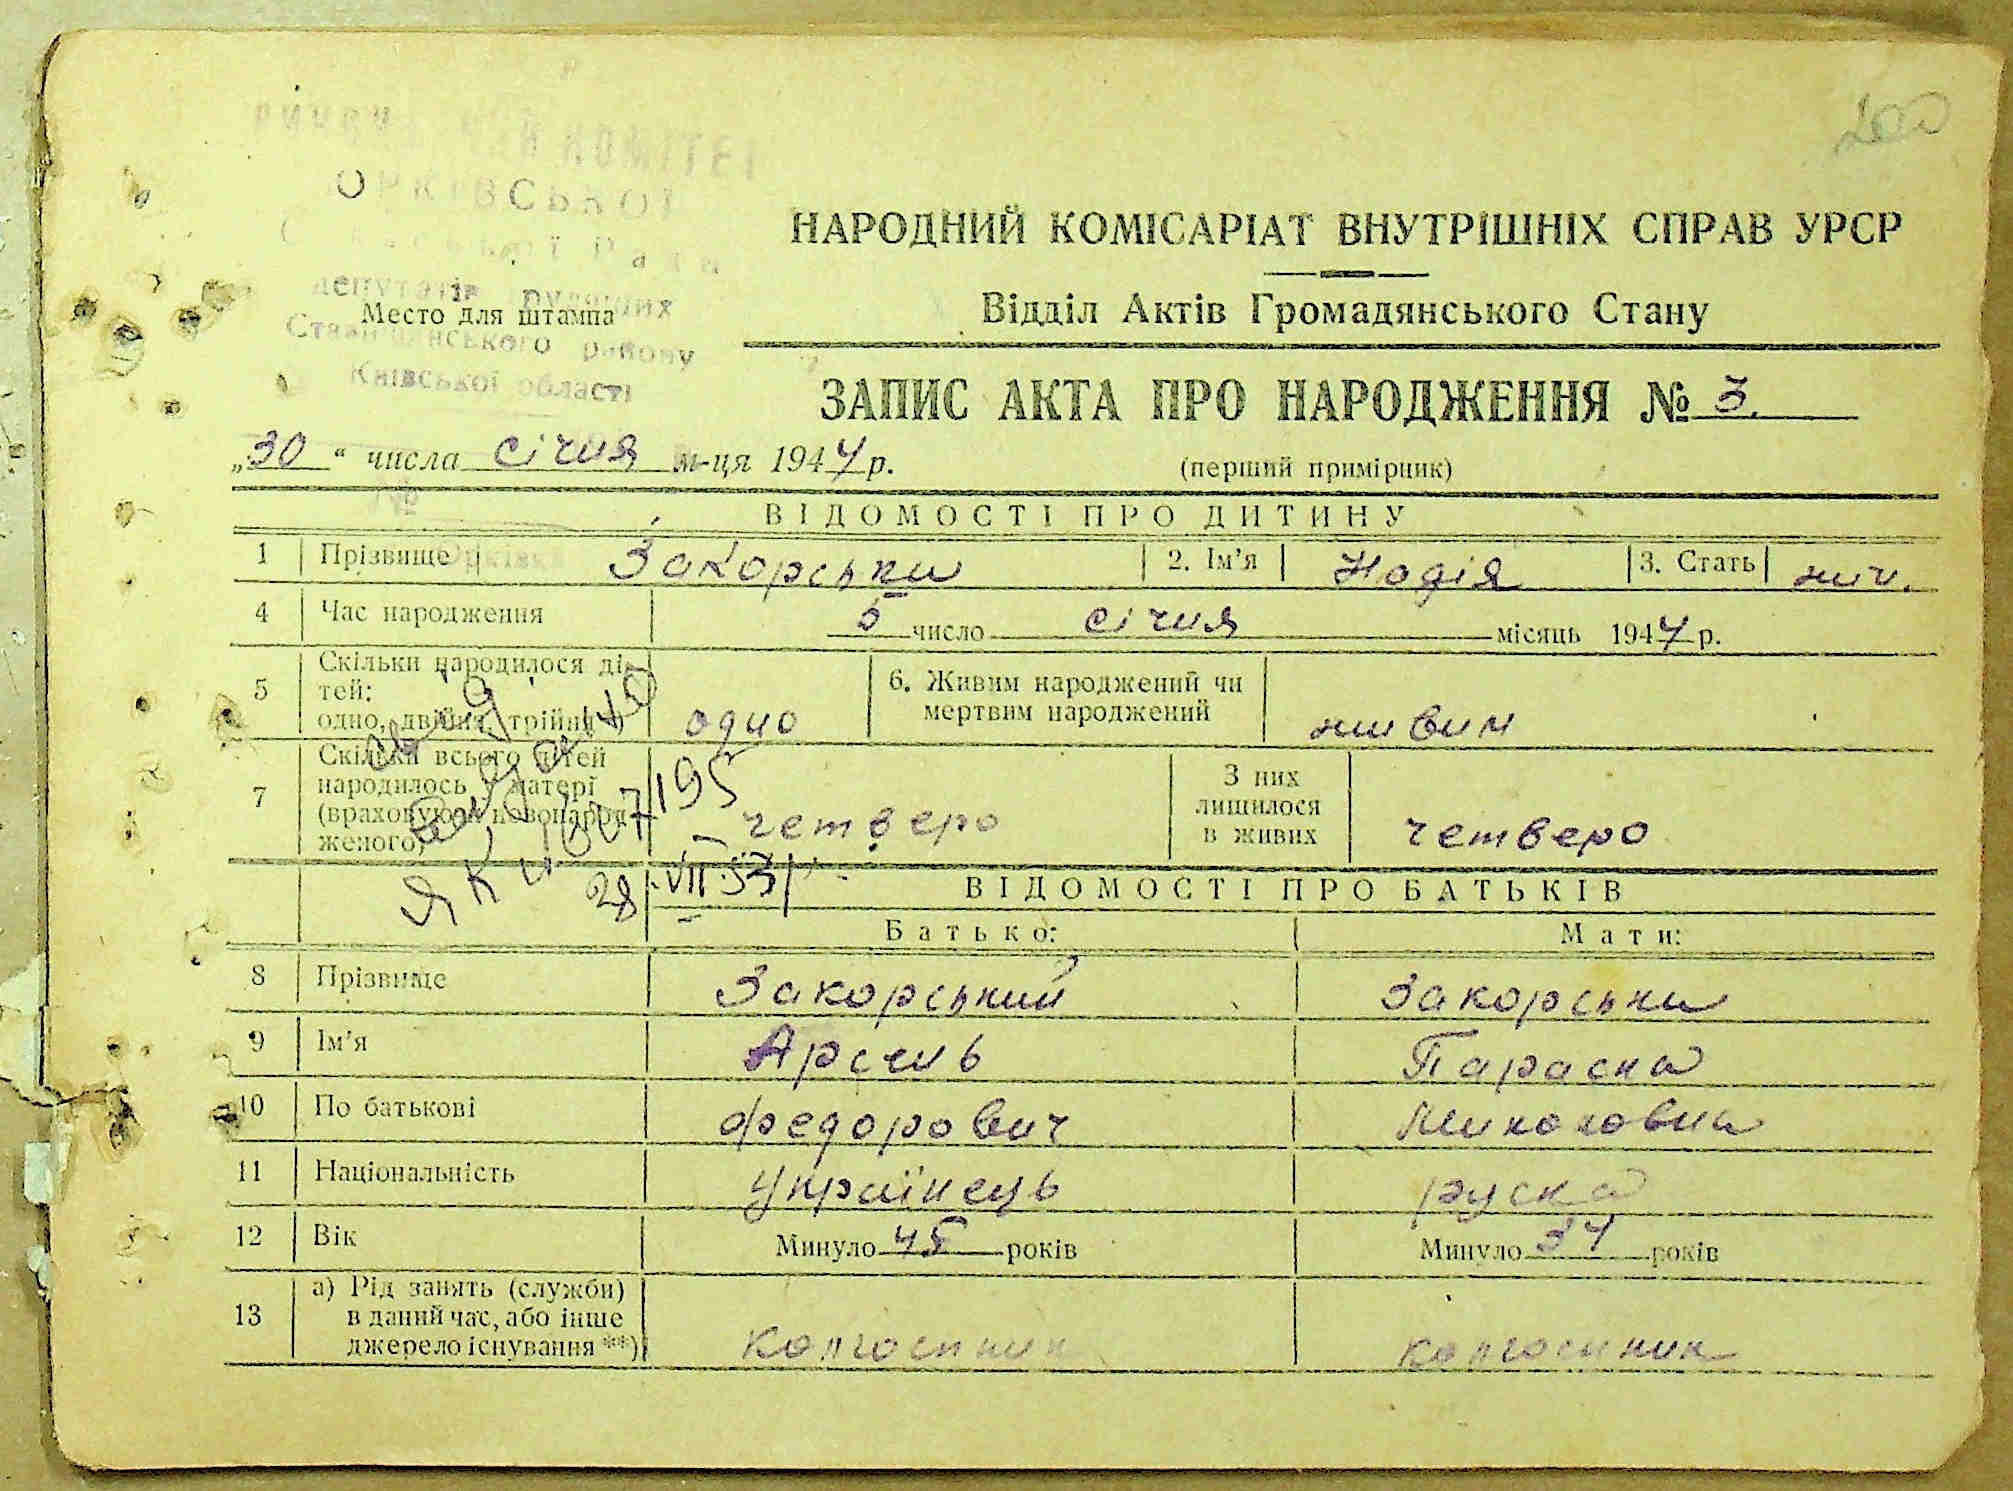 200
КОМІТЕТ
ОРКІВСЬКОЇ
депутатів трудящих
Место для штампа
району
Київської області
НАРОДНИЙ КОМІСАРІАТ ВНУТРІШНІХ СПРАВ УРСР
Відділ Актів Громадянського Стану
ЗАПИС АКТА ПРО НАРОДЖЕННЯ № 3.
„30“ числа січня м-ця 1947 р. (перший примірник)
ВІДОМОСТІ ПРО ДИТИНУ
1 Прізвище Закорська 2. Ім'я Надія 3. Стать жін.
4 Час народження 5 число січня місяць 1947 р.
5 Скільки народилося ді-
тей:
одно, двійня, трійня *) одно
6. Живим народжений чи
мертвим народжений живим
7 Скільки всього дітей
народилось у матері
(враховуючи новонарод-
женого) четверо
З них
лишилося
в живих четверо
28.VII.53
ВІДОМОСТІ ПРО БАТЬКІВ
Батько: Мати:
8 Прізвище Закорський Закорська
9 Ім'я Арсень Параска
10 По батькові Федорович Миколовна
11 Національність українець руска
12 Вік Минуло 45 років Минуло 34 років
13 а) Рід занять (служби)
в даний час, або інше
джерело існування **) колгоспник колгоспник